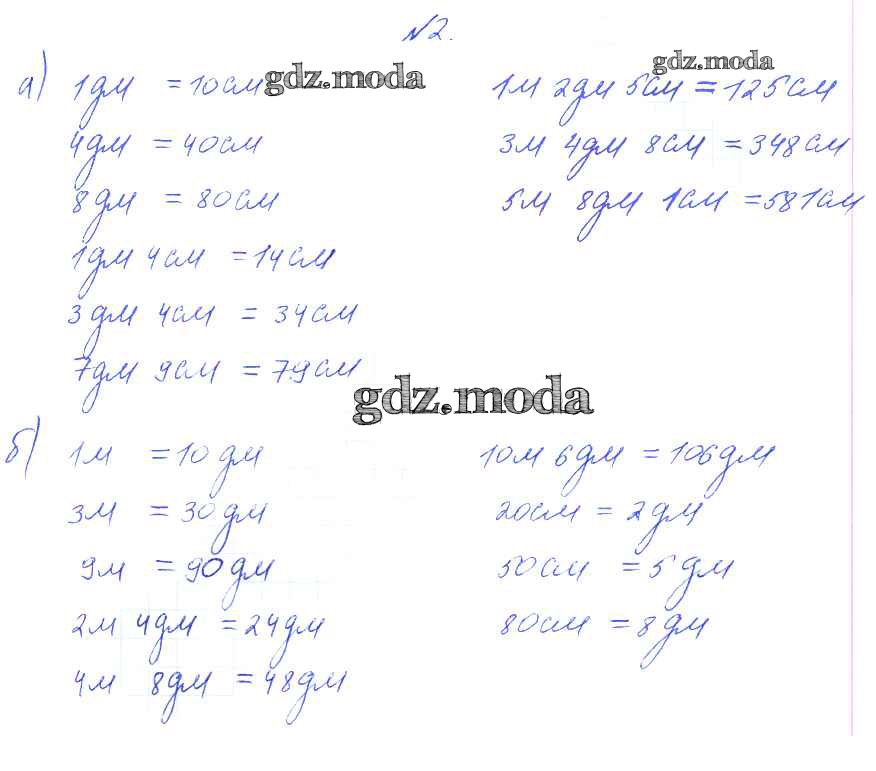 №2.
а) 1дм = 10см
4дм = 40см
8дм = 80см
1дм 4см = 14см
3дм 4см = 34см
7дм 9см = 79см
1м 2дм 5см = 125см
3м 4дм 8см = 348см
5м 8дм 1см = 581см
б) 1м = 10дм
3м = 30дм
9м = 90дм
2м 4дм = 24дм
4м 8дм = 48дм
10м 6дм = 106дм
20см = 2дм
50см = 5дм
80см = 8дм
gdz.moda
gdz.moda
gdz.moda